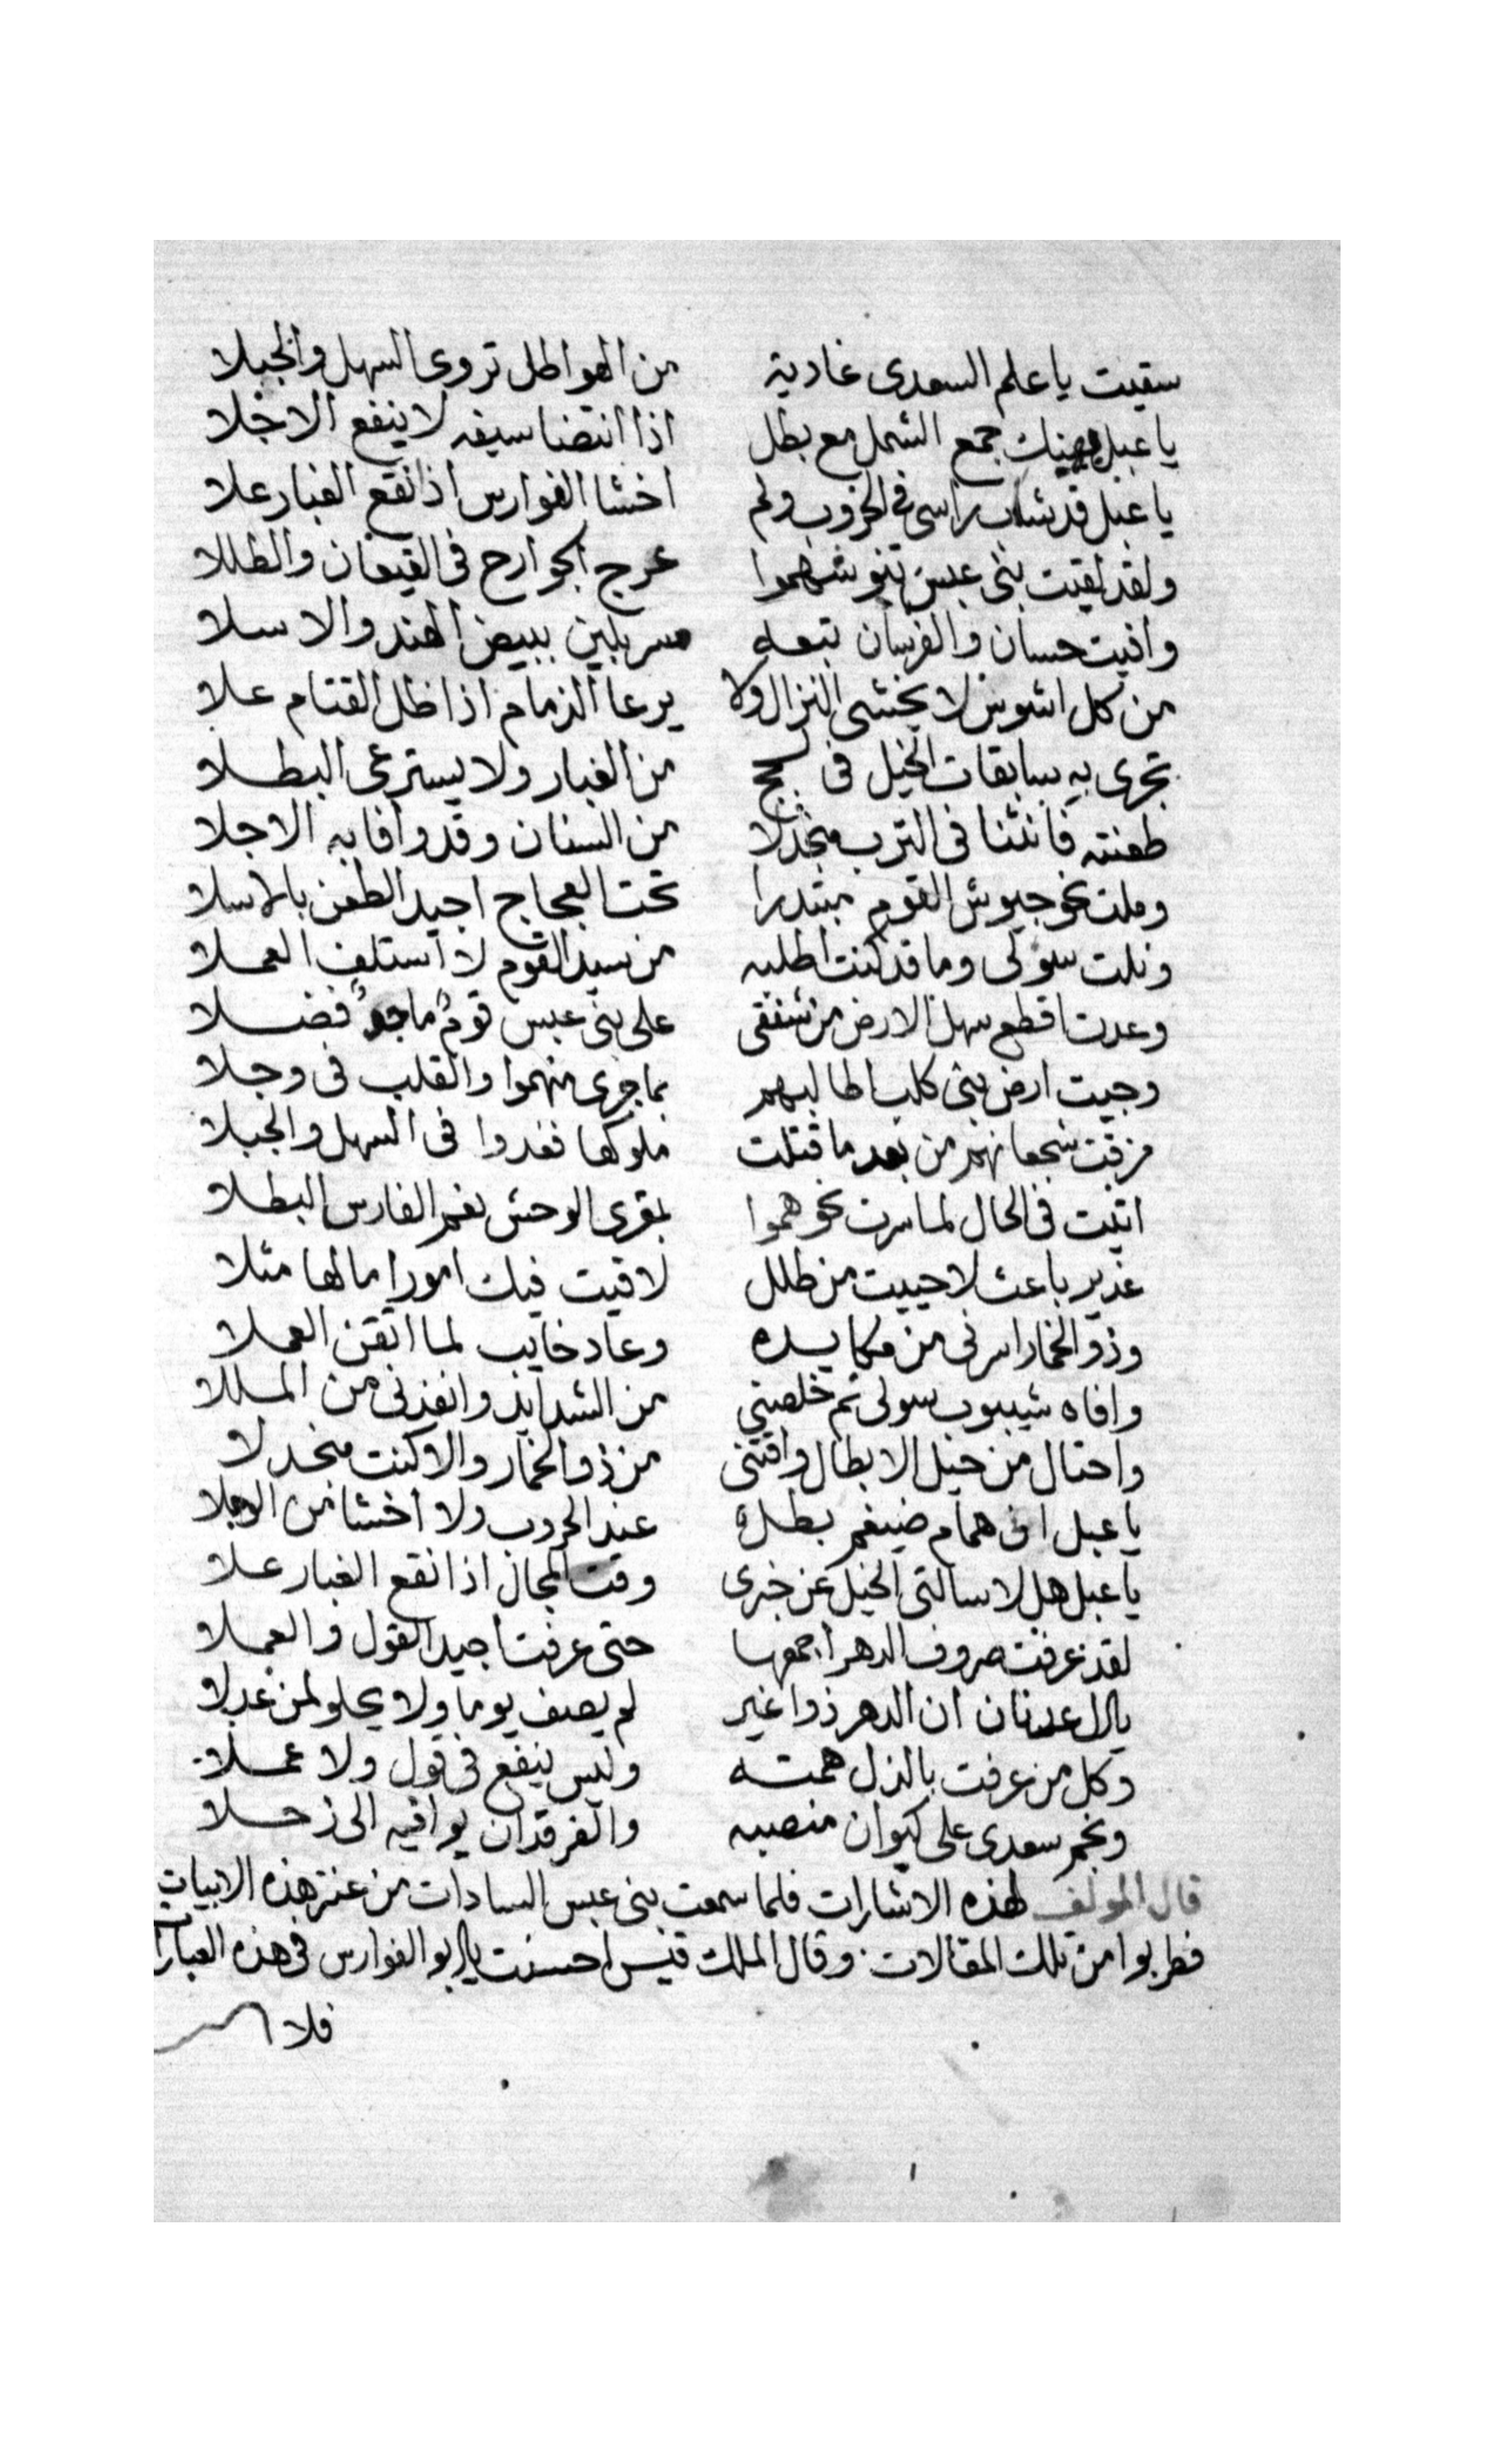 سقيت يا علم السعدى غادية من الهواطل تروى السهل والجبلا
يا عبل يهنيك جمع الشمل مع بطل اذا انتضا سيفه لا ينفع الاجلا
يا عبل قد شاب راسى فى الحروب ولم اخشا الفوارس اذ نقع الغبار علا
ولقد لقيت بنى عبس تنوشهموا عرج الجوارح فى القيعان والطللا
وافيت حسان والفرسان تتبعه مسربلين ببيض الهند والاسلا
من كل اشوس لا يخشى النزال ولا يرعا الذمام اذا ظل القتام علا
تجرى به سابقات الخيل فى لجج من الغبار ولا يسترعى البطلا
طعنته فانثنا فى الترب منجدلا من السنان وقد وافا به الاجلا
وملت نحو جيوش القوم مبتدرا تحت العجاج اجيد الطعن بالاسلا
ونلت سولى وما قد كنت اطلبه من سيد القوم لا استلف العملا
وعدت اقطع سهل الارض من شفقى على بنى عبس قوم ما جو فضلا
وجيت ارض بنى كلب اطالبهم بما جرى منهموا والقلب فى وجلا
مزقت شجعانهم من بعد ما قتلت ملوكها فغدوا فى السهل والجبلا
اتيت فى الحال لما سرت نحوهموا بمقرى الوحش نعم الفارس البطلا
غدير باعث لا حييت من طلل لاقيت فيك امورا مالها مثلا
وذو الخمار اسرنى من مكايده وعاد خايب لما اتقن العملا
وافاه شيبوب سولى ثم خلصنى من الشدايد وانفذنى من المللا
واحتال من حيل الابطال وافتنى من ذو الخمار والا كنت منجدلا
يا عبل انى همام ضيغم بطل عند الحروب ولا اخشا من الوجلا
يا عبل هل لا سالتى الخيل عن خبرى وقت المجال اذا نقع الغبار علا
لقد عرفت صروف الدهر اجمعها حتى عرفت اجيد القول والعملا
يال عدنان ان الدهر ذوا غير لم يصف يوما ولا يحلو لمن عدلا
وكل من عرفت بالذل همته وليس ينفع فى قول ولا عملا
ونجم سعدى على كيوان منصبه والفرقدان يوافيه الى زحلا
قال المولف لهذه الاشارات فلما سمعت بنى عبس السادات من عنتر هذه الابيات
فطربوا من تلك المقالات وقال الملك قيس احسنت يا ابو الفوارس فى هذه العبارا
فلا